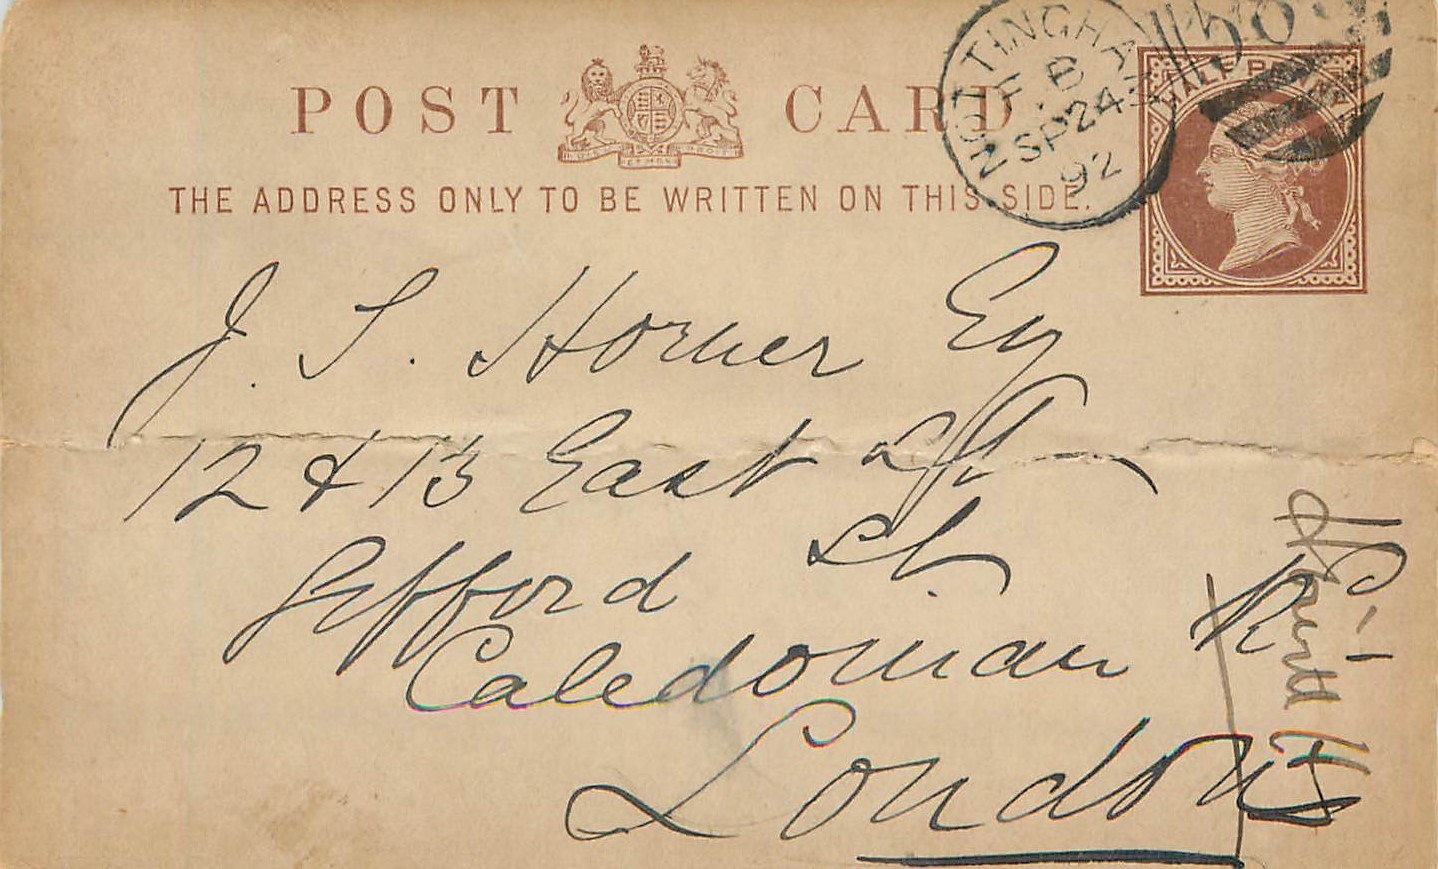 POST CARD
THE ADDRESS ONLY TO BE WRITTEN ON THIS SIDE.
NOTTINGHAM
F B
SP 24
92
HALF PENNY
J. S. Horner Esq
12 & 13 East St
Gifford St.
Caledonian Rd
London